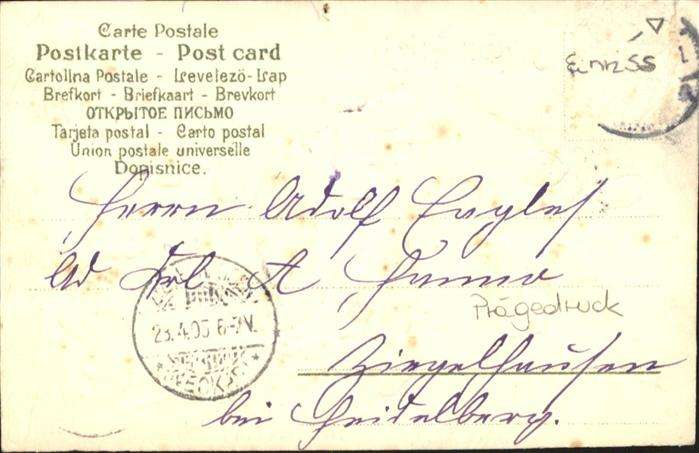 Carte Postale
Postkarte - Post card
Cartolina Postale - Levelezö-Lap
Brefkort - Briefkaart - Brevkort
ОТКРЫТОЕ ПИСЬМО
Tarjeta postal - Carto postal
Union postale universelle
Dopisnice.
Herrn Adolf
Ad A
23.4.05 6-7V.
Prägedruck
Ziegelhausen
bei Heidelberg.